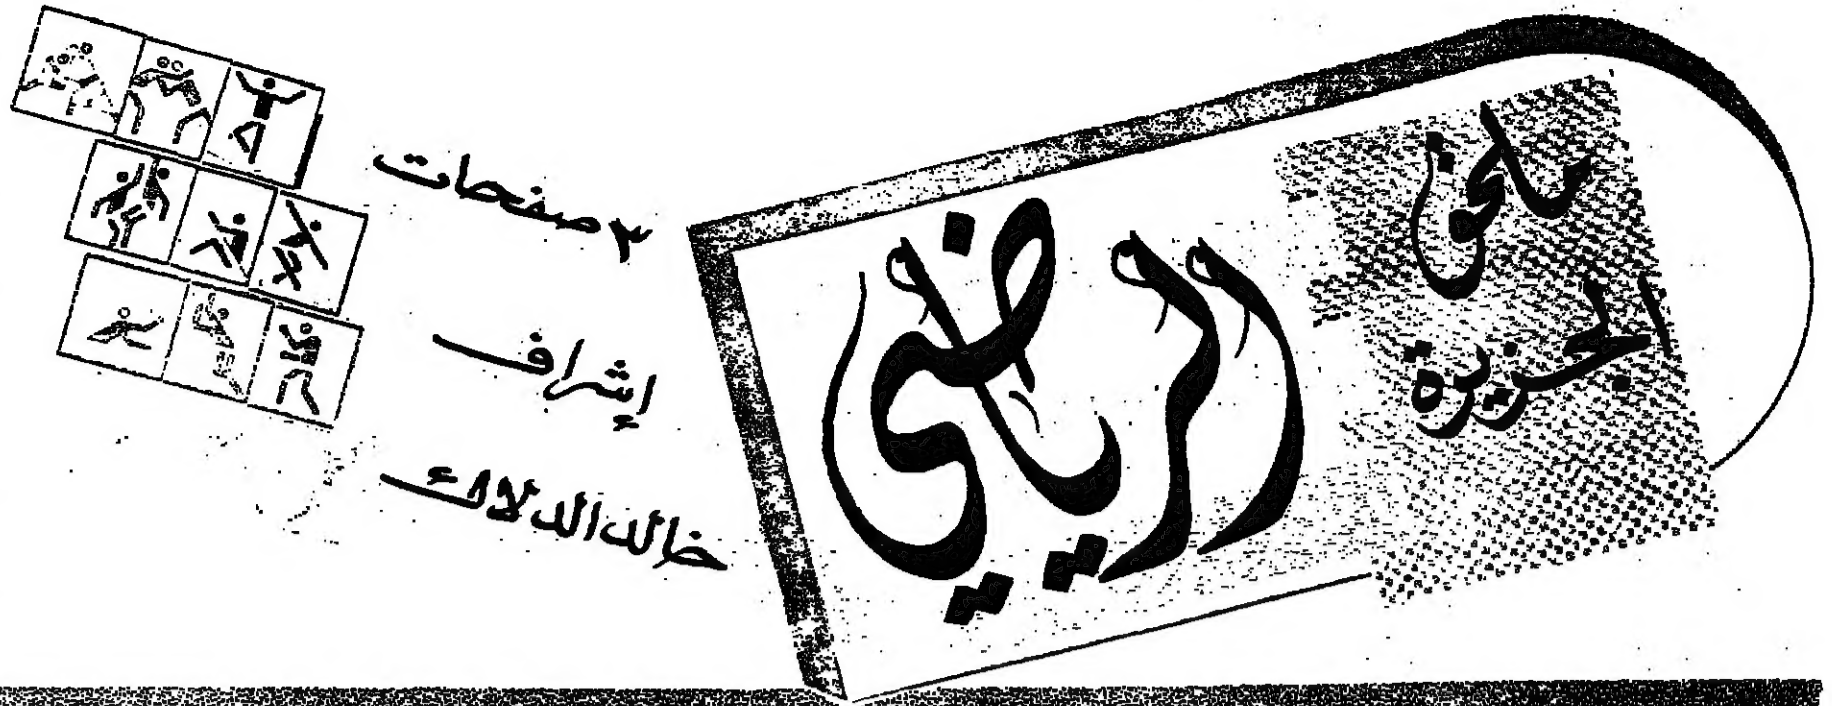 ملحق
الجزيرة
الرياضي
٣ صفحات
إشراف
خالد الدلاك